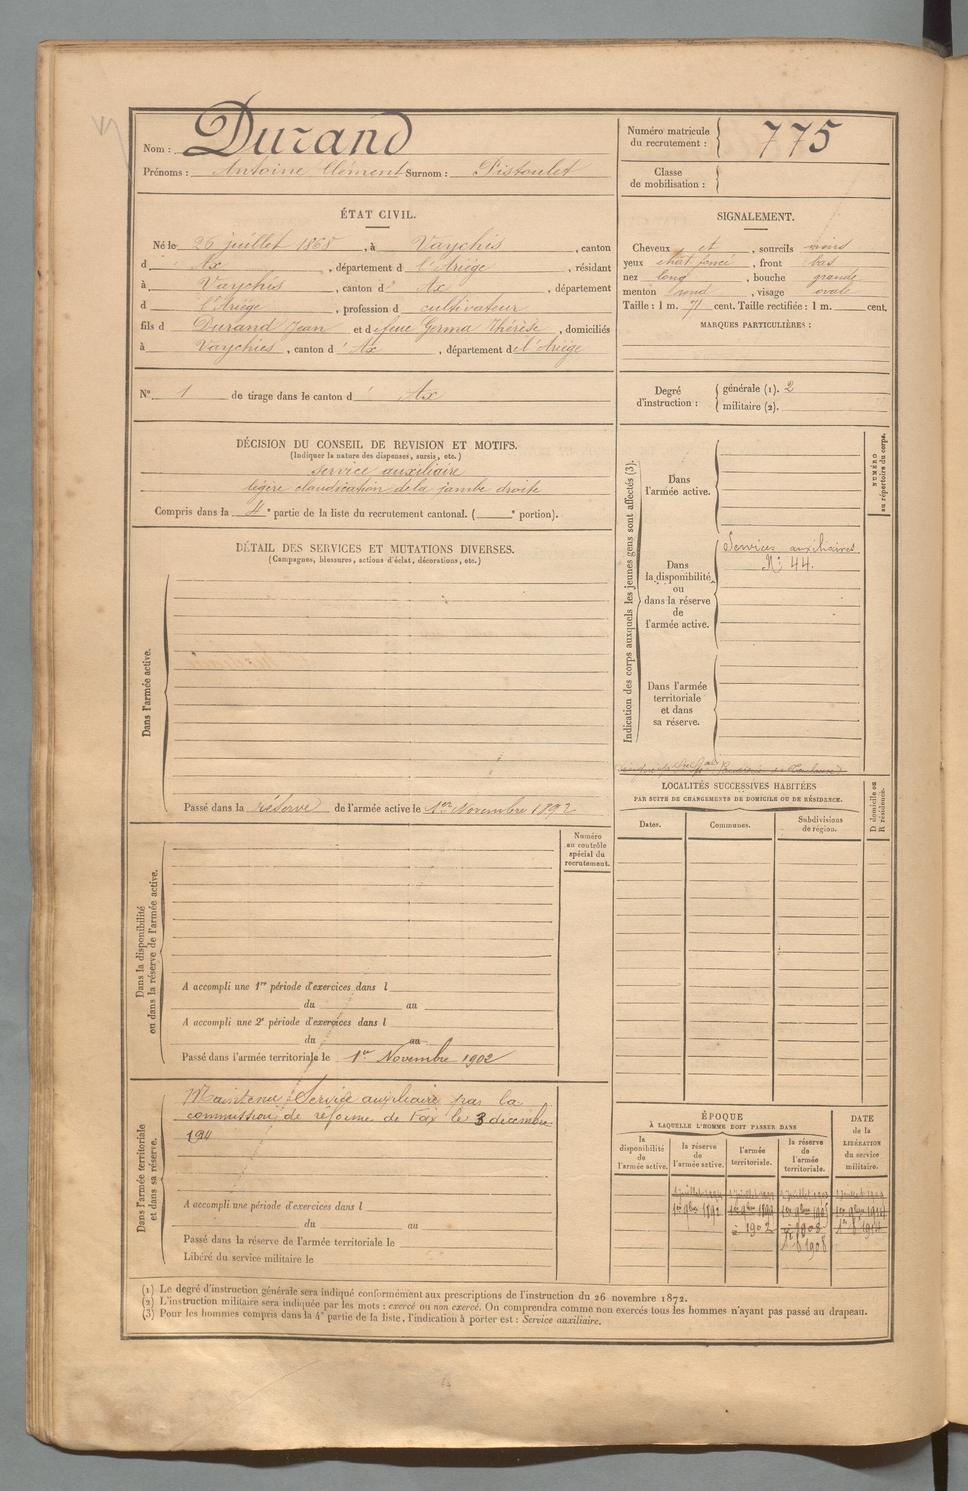 Nom : Durand
Prénoms : Antoine Clément Surnom : Pistoulet
ÉTAT CIVIL.
Né le 26 juillet 1868, à Vaychis, canton
d' Ax, département d l'Ariège, résidant
à Vaychis, canton d' Ax, département
d l'Ariège, profession d cultivateur
fils d Durand Jean et de feue Germa Thérèse, domiciliés
à Vaychies, canton d' Ax, département de l'Ariège
N° 1 de tirage dans le canton d' Ax
DÉCISION DU CONSEIL DE REVISION ET MOTIFS.
(Indiquer la nature des dispenses, sursis, etc.)
service auxiliaire
légère claudication de la jambe droite
Compris dans la 4e partie de la liste du recrutement cantonal. ( e portion).
DÉTAIL DES SERVICES ET MUTATIONS DIVERSES.
(Campagnes, blessures, actions d'éclat, décorations, etc.)
Dans l'armée active.
Passé dans la réserve de l'armée active le 1er Novembre 1892
Numéro
au contrôle
spécial du
recrutement.
Dans la disponibilité
ou dans la réserve de l'armée active.
A accompli une 1re période d'exercices dans l
du au
A accompli une 2e période d'exercices dans l
du au
Passé dans l'armée territoriale le 1er Novembre 1902
Dans l'armée territoriale
et dans sa réserve.
Maintenu Service auxiliaire par la
commission de réforme de Foix le 3 décembre
1914
A accompli une période d'exercices dans l
du au
Passé dans la réserve de l'armée territoriale le
Libéré du service militaire le
Numéro matricule
du recrutement : 775
Classe
de mobilisation :
SIGNALEMENT.
Cheveux et, sourcils noirs
yeux chat. foncé, front bas
nez long, bouche grande
menton rond, visage ovale
Taille : 1 m. 71 cent. Taille rectifiée : 1 m. cent.
MARQUES PARTICULIÈRES :
Degré
d'instruction :
générale (1). 2
militaire (2).
Indication des corps auxquels les jeunes gens sont affectés (3).
NUMÉRO
au répertoire du corps.
Dans
l'armée active.
Dans
la disponibilité
ou
dans la réserve
de
l'armée active.
Services auxiliaires
N° 44.
Dans l'armée
territoriale
et dans
sa réserve.
LOCALITÉS SUCCESSIVES HABITÉES
PAR SUITE DE CHANGEMENTS DE DOMICILE OU DE RÉSIDENCE.
D domicile ou
R résidence.
Dates.
Communes.
Subdivisions
de région.
ÉPOQUE
À LAQUELLE L'HOMME DOIT PASSER DANS
DATE
de la
LIBÉRATION
du service
militaire.
la
disponibilité
de
l'armée active.
la réserve
de
l'armée active.
l'armée
territoriale.
la réserve
de
l'armée
territoriale.
1er 9bre 1892
1er 9bre 1899
1902
1er 9bre 1905
1908
1908
1914
(1) Le degré d'instruction générale sera indiqué conformément aux prescriptions de l'instruction du 26 novembre 1872.
(2) L'instruction militaire sera indiquée par les mots : exercé ou non exercé. On comprendra comme non exercés tous les hommes n'ayant pas passé au drapeau.
(3) Pour les hommes compris dans la 4e partie de la liste, l'indication à porter est : Service auxiliaire.